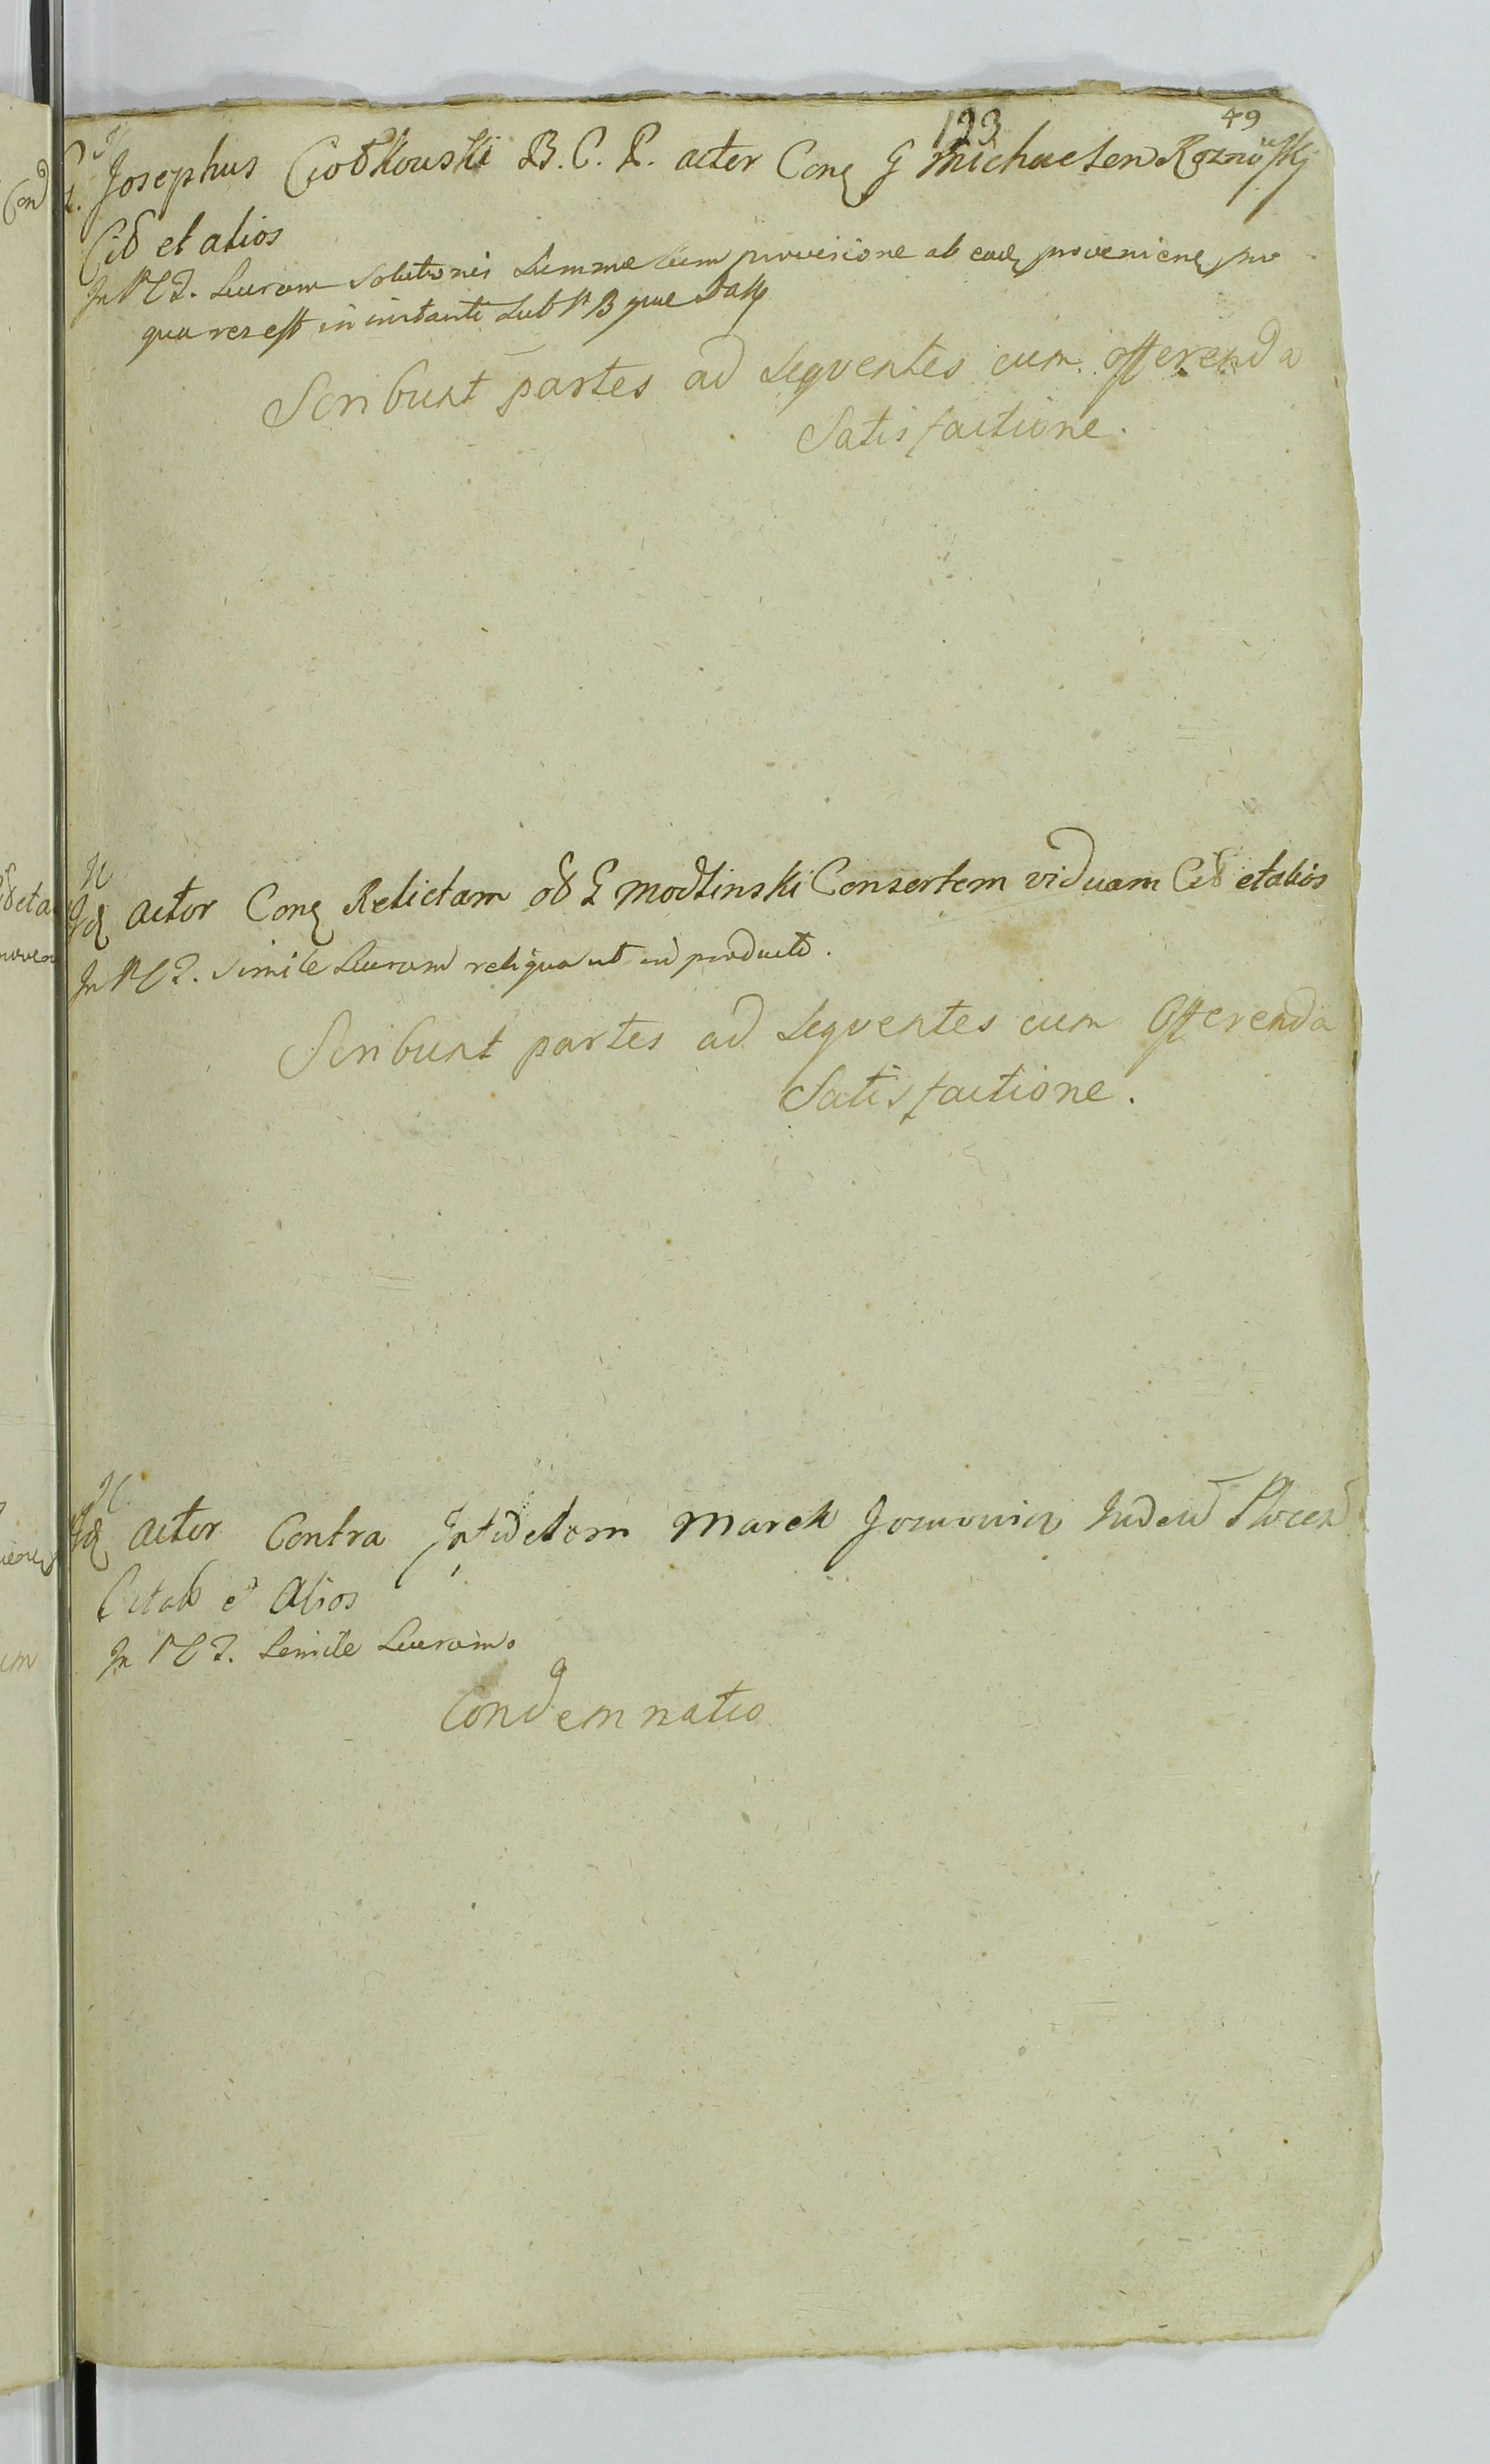 193
49
Josephus Ciodkowski B. C. P. actor Conq G Michaelem
Cit et alios
In Lucrum Solutionis Summae cum provisione ab eadq provenienq pro
qua res est in instanti Sub
Scribunt partes ad Seqventes cum offerenda
Satisfactione.
N
Idq actor Conq Relictam ol G Modlinski Consortem viduam Cit et alios
In Simile Lucrum reliqua ut in producto.
Scribunt partes ad Seqventes cum Offerenda
Satisfactione.
N
Idq actor Contra Infidelem Marek Judeum Plocen
Citat et Alios
In Simile Lucrum.
Condemnatio